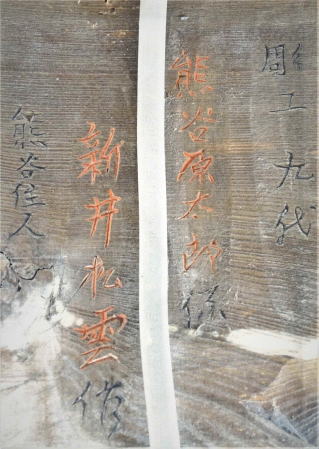 彫工九代
熊谷原太郎孫
新井松雲作
熊谷住人